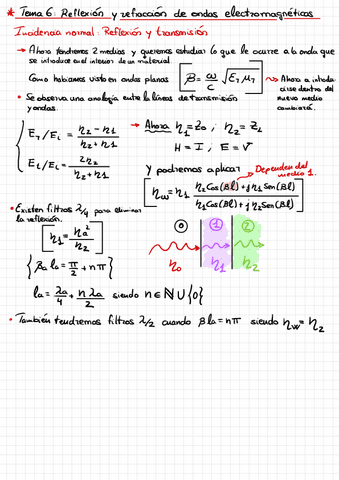 * Tema 6: Reflexión y refracción de ondas electromagnéticas
Incidencia normal: Reflexión y transmisión
→ Ahora tendremos 2 medios y queremos estudiar lo que le ocurre a la onda que
se introduce en el interior de un material.
Como habíamos visto en ondas planas [β = ω/c √(εr μr)] → Ahora a introducirse dentro del
nuevo medio
cambiará.
• Se observa una analogía entre la líneas de transmisión
y ondas.
Er/Ei = (η2 - η1)/(η2 + η1)
Et/Ei = 2η2/(η2 + η1)
→ Ahora η1 = Z0 , η2 = ZL
H = I , E = V
Y podremos aplicar
Dependen del
medio 1.
[ηw = η1 (η2 Cos(βl) + jη1 Sen(βl))/(η1 Cos(βl) + jη2 Sen(βl))]
• Existen filtros λ/4 para eliminar
la reflexión.
{βa la = π/2 + nπ}
la = λa/4 + nλa/2 siendo n ∈ ℕ ∪ {0}
0 1 2
η0 η1 η2
• También tendremos filtros λ/2 cuando βla = nπ siendo ηw = η2